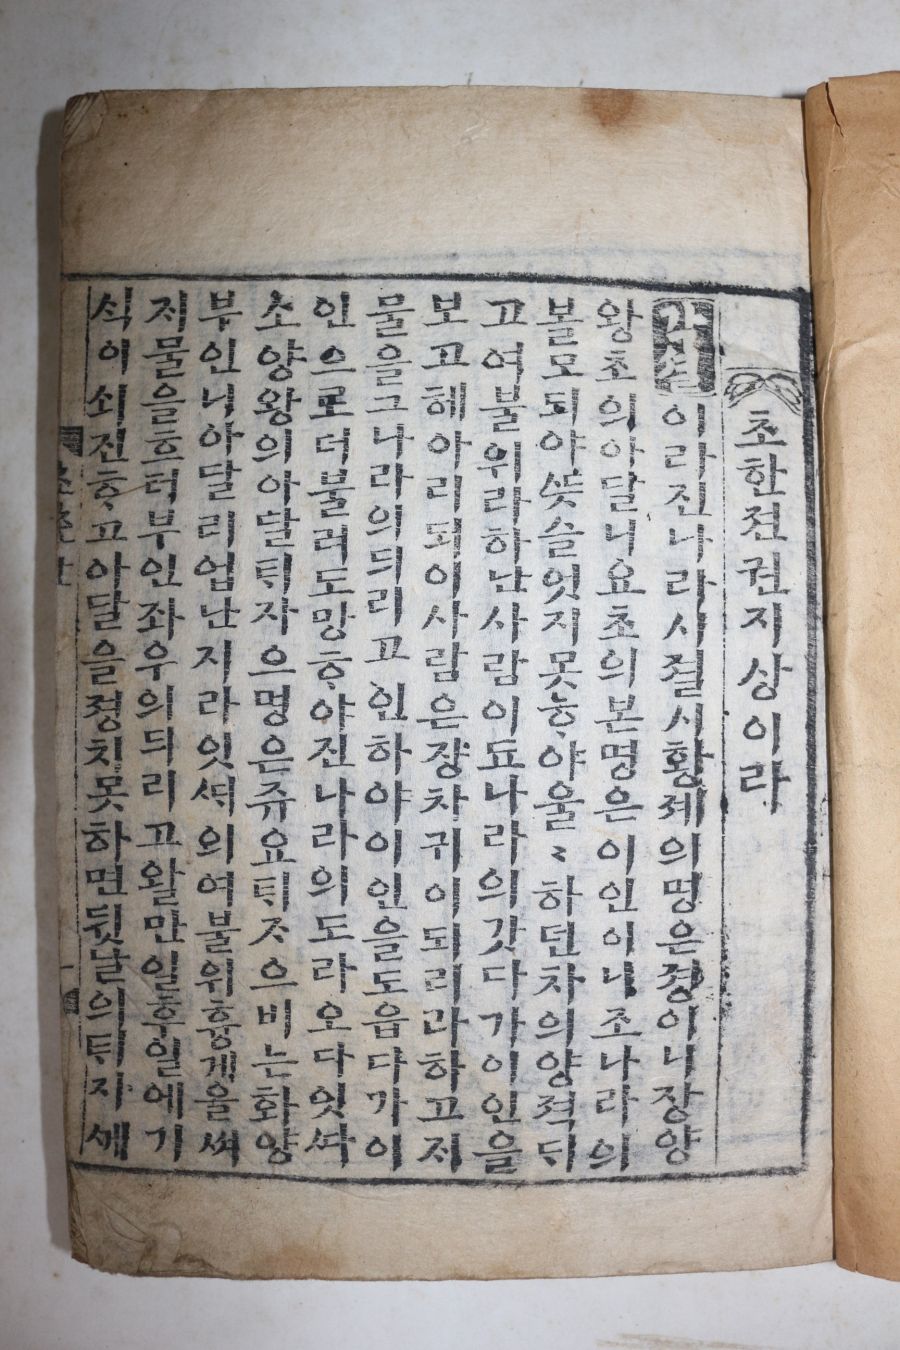 초한젼권지상이라
각셜이라진나라시졀시황졔의명은졍이니장양
왕초의아달니요초의본명은이인이니조나라의
볼모되야뜻슬엇지못ᄒᆞ야울〻하던차의양젹듸
고여불위라하난사람이됴나라의갓다가이인을
보고혜아리되이사람은쟝차귀이되리라하고ᄌᆡ
물을그나라의듸리고인하야이인을도읍다가이
인으로더부러도망ᄒᆞ야진나라의도라오다잇ᄯᆡ
소양왕의아달ᄐᆡ자으명은쥬요ᄐᆡᄌᆞ으비는화양
부인니아달리업난지라잇ᄯᆡ의여불위흉계을써
ᄌᆡ물을흐터부인좌우의듸리고왈만일후일에기
식이쇠진ᄒᆞ고아달을졍치못하면뒷날의ᄐᆡ자ᄭᅦ